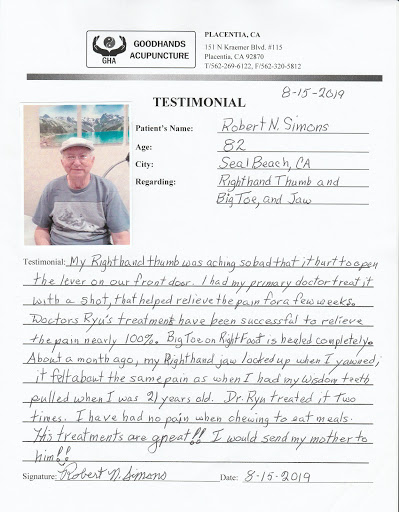 GHA
GOODHANDS
ACUPUNCTURE
PLACENTIA, CA
151 N Kraemer Blvd. #115
Placentia, CA 92870
T/562-269-6122, F/562-320-5812
8-15-2019
TESTIMONIAL
Patient's Name: Robert N. Simons
Age: 82
City: Seal Beach, CA
Regarding: Righthand Thumb and
Big Toe, and Jaw
Testimonial: My Righthand thumb was aching so bad that it hurt to open
the lever on our front door. I had my primary doctor treat it
with a shot, that helped relieve the pain for a few weeks.
Doctors Ryu's treatment have been successful to relieve
the pain nearly 100%. Big Toe on Right Foot is healed completely.
About a month ago, my Righthand jaw locked up when I yawned,
it felt about the same pain as when I had my wisdom teeth
pulled when I was 21 years old. Dr. Ryu treated it Two
times. I have had no pain when chewing to eat meals.
His treatments are great!! I would send my mother to
him!!
Signature: Robert N. Simons Date: 8-15-2019